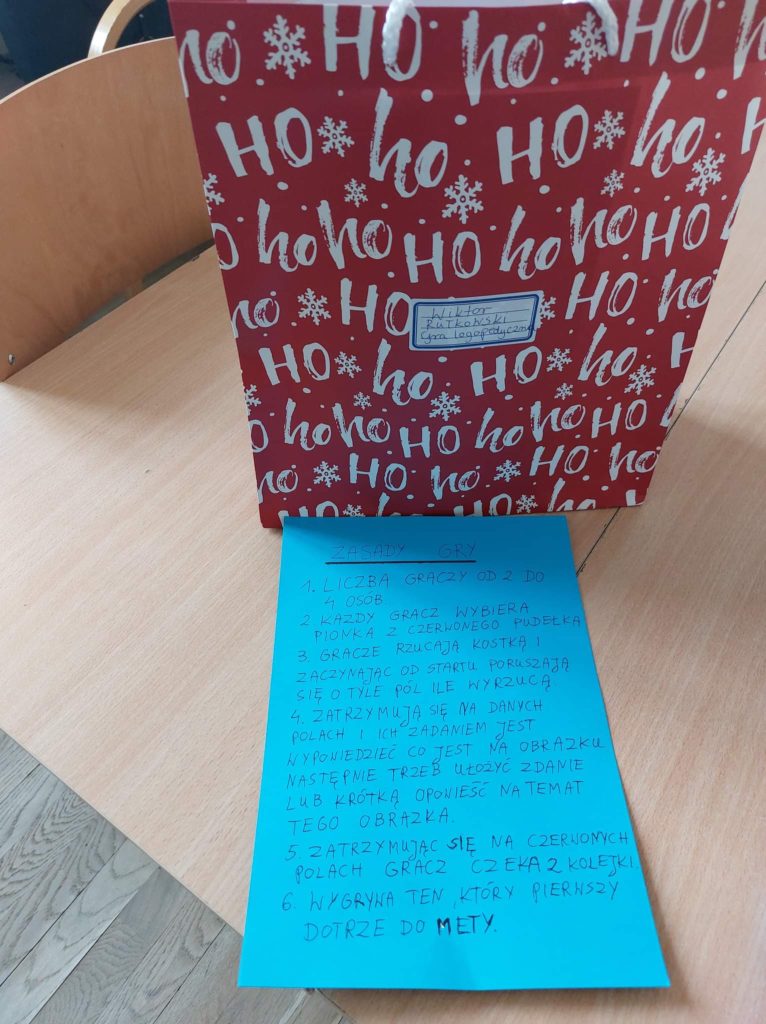 ho HO ho HO ho
HO ho HO ho H
ho ho HO ho ho HO
ho HO HO ho
Wiktor
Rutkowski
Gra logopedyczna
HO ho HO ho H
ho ho HO ho ho HO
ho HO ho HO ho
ZASADY GRY
1. LICZBA GRACZY OD 2 DO
4 OSÓB.
2. KAŻDY GRACZ WYBIERA
PIONKA Z CZERWONEGO PUDEŁKA
3. GRACZE RZUCAJĄ KOSTKĄ I
ZACZYNAJĄC OD STARTU PORUSZAJĄ
SIĘ O TYLE PÓL ILE WYRZUCĄ
4. ZATRZYMUJĄ SIĘ NA DANYCH
POLACH I ICH ZADANIEM JEST
WYPOWIEDZIEĆ CO JEST NA OBRAZKU
NASTĘPNIE TRZEB UŁOŻYĆ ZDANIE
LUB KRÓTKĄ OPOWIEŚĆ NA TEMAT
TEGO OBRAZKA.
5. ZATRZYMUJĄC SIĘ NA CZERWONYCH
POLACH GRACZ CZEKA 2 KOLEJKI.
6. WYGRYWA TEN, KTÓRY PIERWSZY
DOTRZE DO METY.